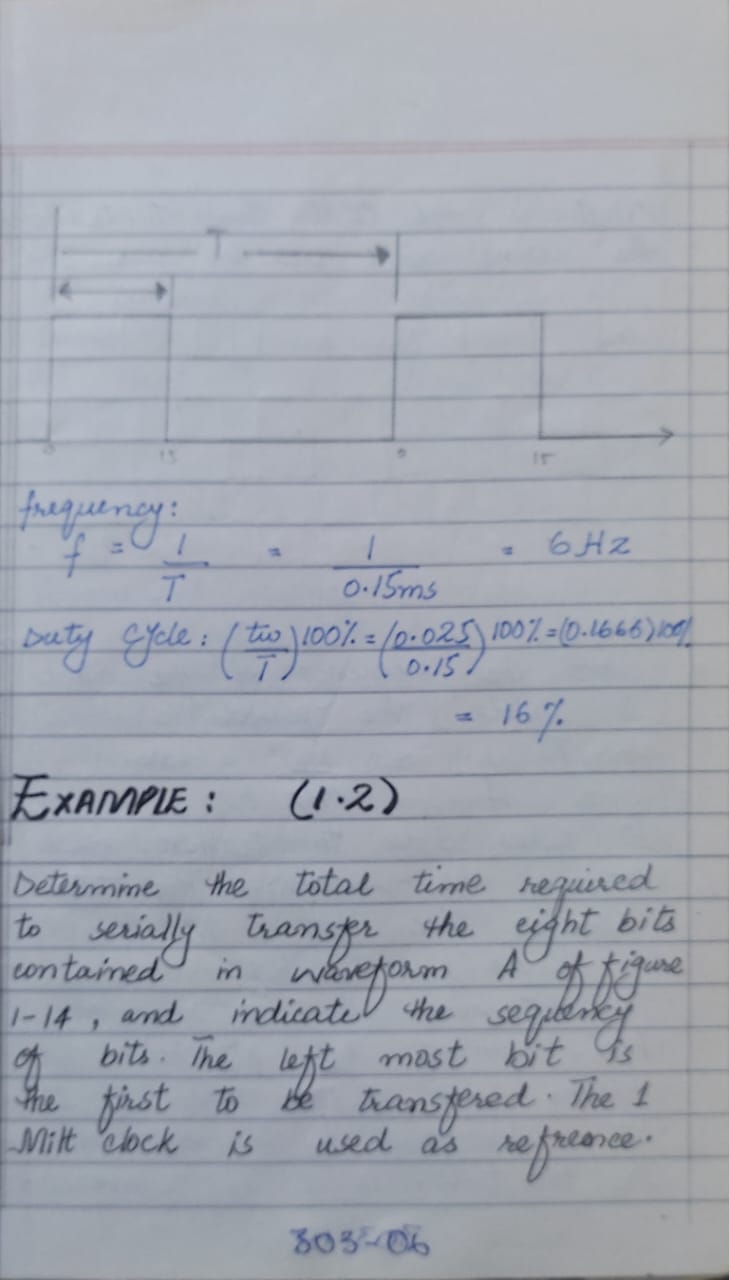 T
0 15 0 15
frequency:
f = 1/T = 1/0.15ms = 6Hz
Duty Cycle: (tw/T)100% = (0.025/0.15)100% = (0.1666)100%
= 16%
EXAMPLE: (1.2)
Determine the total time required
to serially transfer the eight bits
contained in waveform A of figure
1-14, and indicate the sequency
of bits. The left most bit is
the first to be transfered. The 1
MHz clock is used as refrence.
303-06